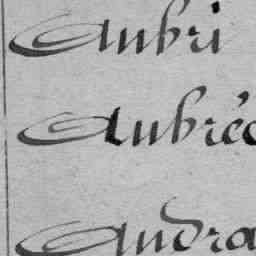 Aubri
Aubréc
Audra